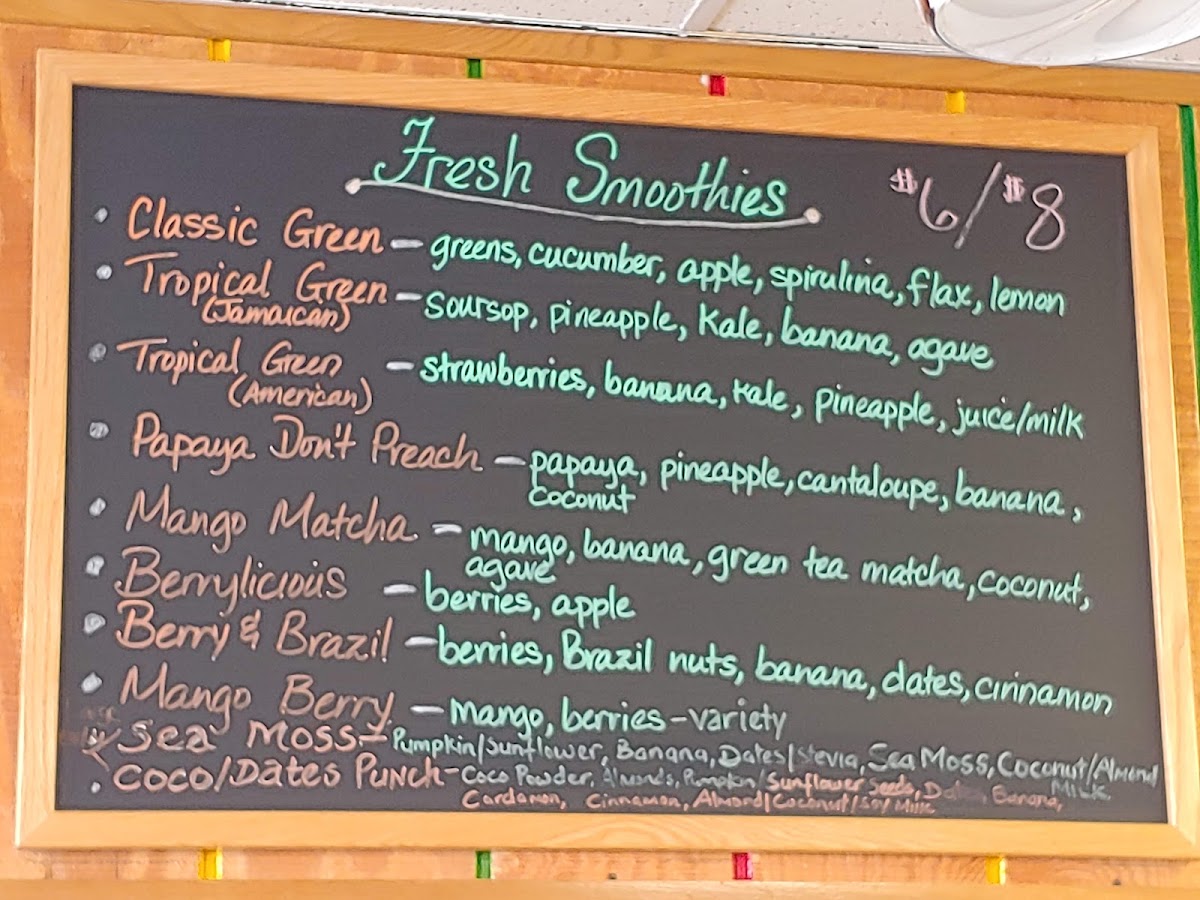 Fresh Smoothies $6/$8
Classic Green – greens, cucumber, apple, spirulina, flax, lemon
Tropical Green – soursop, pineapple, Kale, banana, agave
(Jamaican)
Tropical Green – strawberries, banana, kale, pineapple, juice/milk
(American)
Papaya Don't Preach – papaya, pineapple, cantaloupe, banana,
coconut
Mango Matcha – mango, banana, green tea matcha, coconut,
agave
Berrylicious – berries, apple
Berry & Brazil – berries, Brazil nuts, banana, dates, cinnamon
Mango Berry – mango, berries – variety
Sea Moss – Pumpkin/Sunflower, Banana, Dates/Stevia, Sea Moss, Coconut/Almond
Milk
Coco/Dates Punch – Coco Powder, Almonds, Pumpkin/Sunflower Seeds, Banana,
Cardamon, Cinnamon, Almond/Coconut/Soy Milk